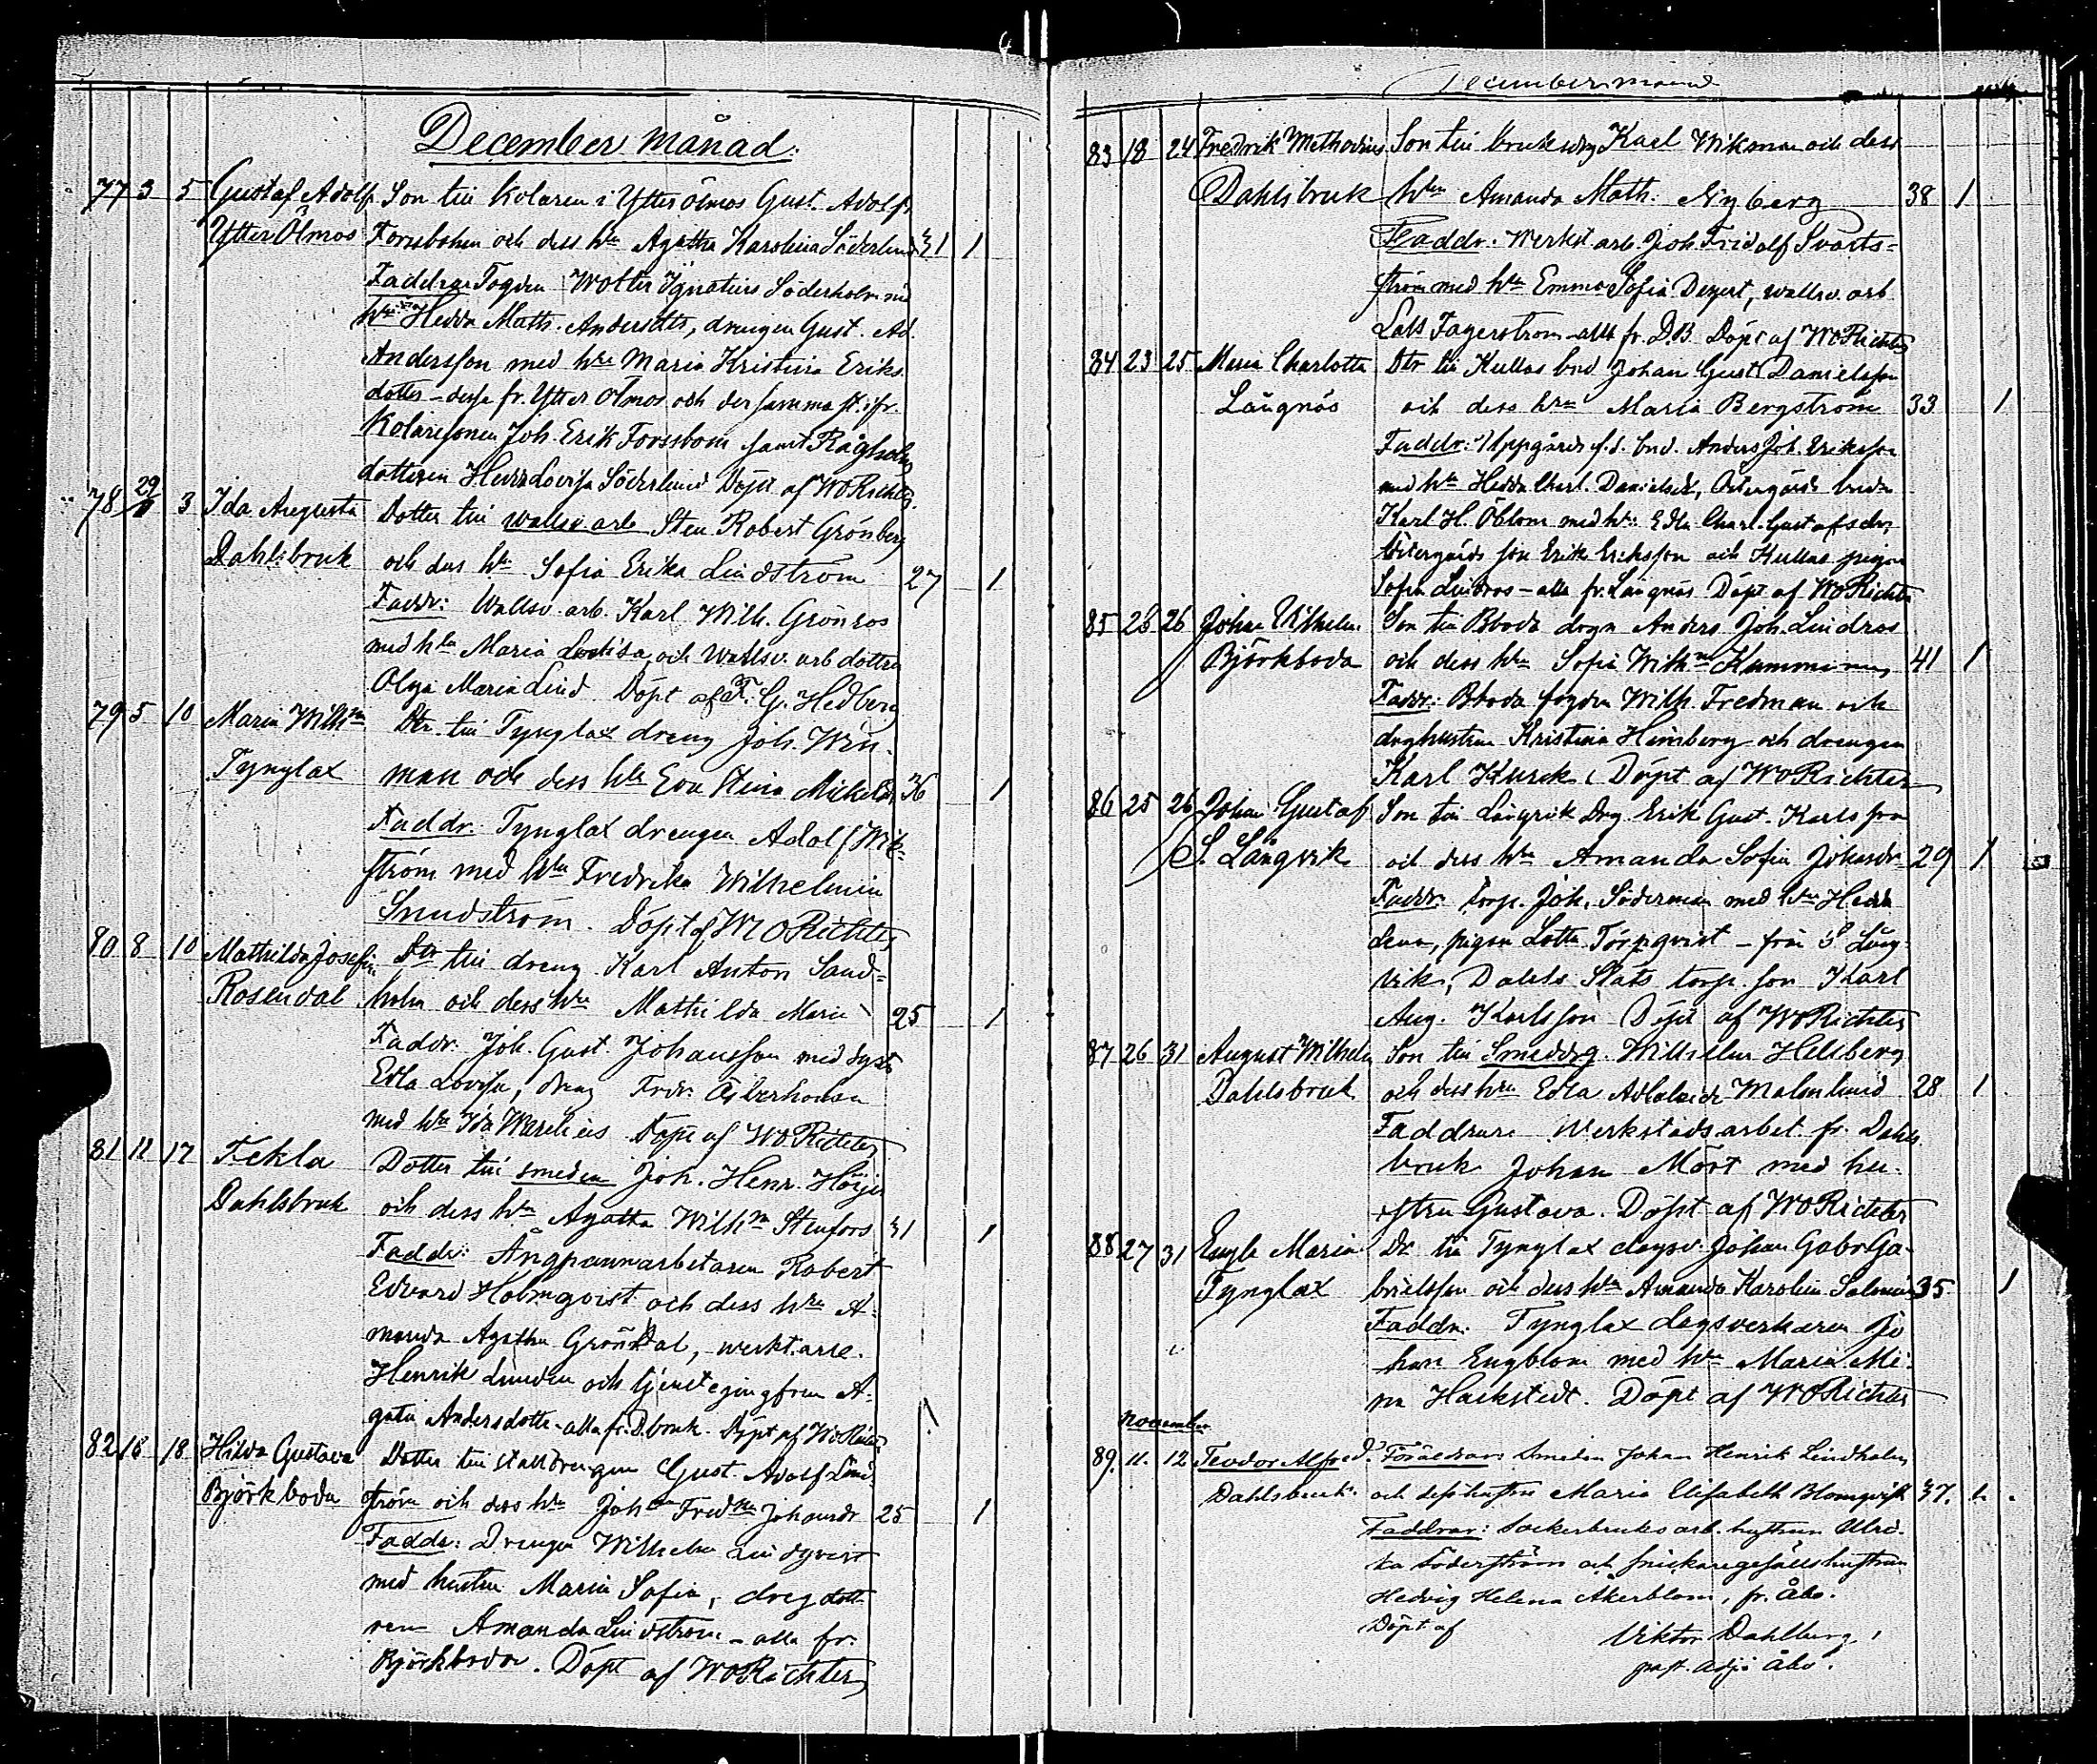 December månad.
77 3 5 Gustaf Adolf Son till Kolaren i Ytterölmos Gust. Adolf
Ytter Ölmos Forssbohm och dess hu Agatha Karolina Söderlund 31 1
Faddrar Fogden Wolter Ignatius Söderholm med
hu Hedda Math. Andersdtt, drengen Gust. Ad.
Andersson med hu Maria Kristina Eriks
dotter - desse fr. Ytter Ölmos och dersamma st.
Kolaresonen Joh. Erik Forssbom samt
dotteren Hedda Lovisa Söderlund Döpt af WORichter
78 29 3 Ida Augusta Dotter till wallsv. arb Sten Robert Grönberg
Dahlsbruk och dess hu Sofia Erika Lindström 27 1
Faddr: Wallsv. arb. Karl Wilh. Grönros
med hu Maria Lovisa och Wallsv. arb dottren
Olga Maria Lind Döpt af F. G. Hedberg
79 5 10 Maria Wilhna Dtr. till Tynglax dreng Joh. Win-
Tynglax man och dess hu Eva Stina Mickelsdr 36 1
Faddr. Tynglax drengen Adolf Wik-
ström med hu Fredrika Wilhelmina
Sundström. Döpt af WORichter
80 8 10 Mathilda Josefina Dtr till dreng Karl Anton Sand-
Rosendal holm och dess hu Mathilda Maria 25 1
Faddr. Joh. Gust. Johansson med syst.
Edla Lovisa, dreng Fredr.
med hu Ida Döpt af WORichter
81 11 17 Tekla Dotter till smeden Joh. Henr. Höijer
Dahlsbruk och dess hu Agatha Wilhna Stenfors 31 1
Faddr: Ångpannarbetaren Robert
Edvard Holmqvist och dess hu A-
manda Agatha Gröndal, werkst.arb.
Henrik Lindén och tjenstejungfrun A-
gata Andersdotter - alla fr. D.bruk. Döpt af WORichter
82 16 18 Hilda Gustava Dotter till stalldrengen Gust. Adolf Lind-
Björkboda ström och dess hu Johna Fredka Johansdr 25 1
Faddr: Drengen Wilhelm Lindqvist
med hustru Maria Sofia, dregdott-
ren Amanda Lindström - alla fr.
Björkboda. Döpt af WORichter
December månad
83 18 24 Fredrik Methodius Son till bruksdrg Karl Wiksman och dess
Dahlsbruk hu Amanda Math. Nyberg 38 1
Faddr: Werkst arb. Joh. Fridolf Svarts-
ström med hu Emma Sofia Degert, wallsv. arb
Lars Fagerström alla fr. D.B. Döpt af WORichter
84 23 25 Maria Charlotta Dtr till Kullas bnd Johan Gust Danielsson
Långnäs och dess hu Maria Bergström 33 1
Faddr: Uppgårds f.d. bnd. Anders Joh. Eriksson
med hu Hedda Charl. Danielsdr, Östergårds bnden
Karl H. Öblom med hu Edla Charl. Gustafsdr,
Östergårds son Erik Eriksson och Kullas pigan
Sofia Lindroos - alla fr. Långnäs Döpt af WORichter
85 26 Johan Wilhelm Son till Bboda dregn Anders Joh. Lindroos
Björkboda och dess hu Sofia Wilhna 41 1
Faddr: Bboda fogden Wilh. Fredman och
dreghustrun Kristina Heinberg och drengen
Karl Döpt af WORichter
86 25 26 Johan Gustaf Son till Långvik Drg Erik Gust. Karlsson
S. Långvik och dess hu Amanda Sofia Johansdr 29 1
Faddr: torp. Joh. Söderman med hu Hedda
Lena, pigan Lotta Törnqvist - från S. Lång-
vik, Dahls Stats torp. son Karl
Aug. Karlsson Döpt af WORichter
87 26 31 August Wilhelm Son till Smeddrg. Wilhelm Hellberg
Dahlsbruk och dess hu Edla Adelaide Malmlund 28 1
Faddrar: Werkstadsarbet. fr. Dahls
bruk Johan Mört med hu-
strun Gustava. Döpt af WORichter
88 27 31 Engla Maria Dr till Tynglax dagsv. Johan Gabr Ga-
Tynglax brielsson och dess hu Amanda Karolina Salomonsdr 35 1
Faddr. Tynglax dagsverkaren Jo
han Engblom med hu Maria Mi-
na Hackstedt. Döpt af WORichter
november
89. 11. 12 Teodor Alfred. Föräldrar: Smeden Johan Henrik Lindholm
Dahlsbruk. och dess hustru Maria Elisabeth Blomqvist 37. 1.
Faddrar: Sockerbruks arb. hustrun Ulri-
ka Söderström och snickaregesällshustrun
Hedvig Helena Åkerblom, fr. Åbo.
Döpt af Viktor Dahlberg,
past. adj. i Åbo.